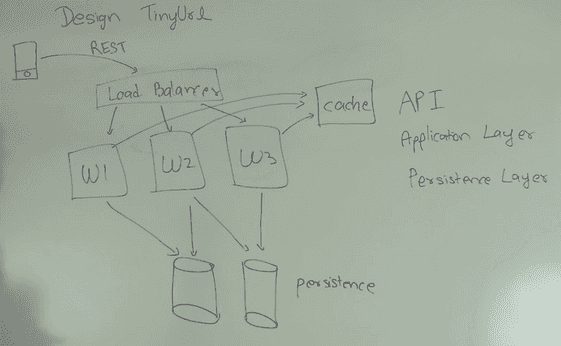 Design TinyUrl
REST
Load Balancer
cache
API
Application Layer
W1
W2
W3
Persistence Layer
persistence